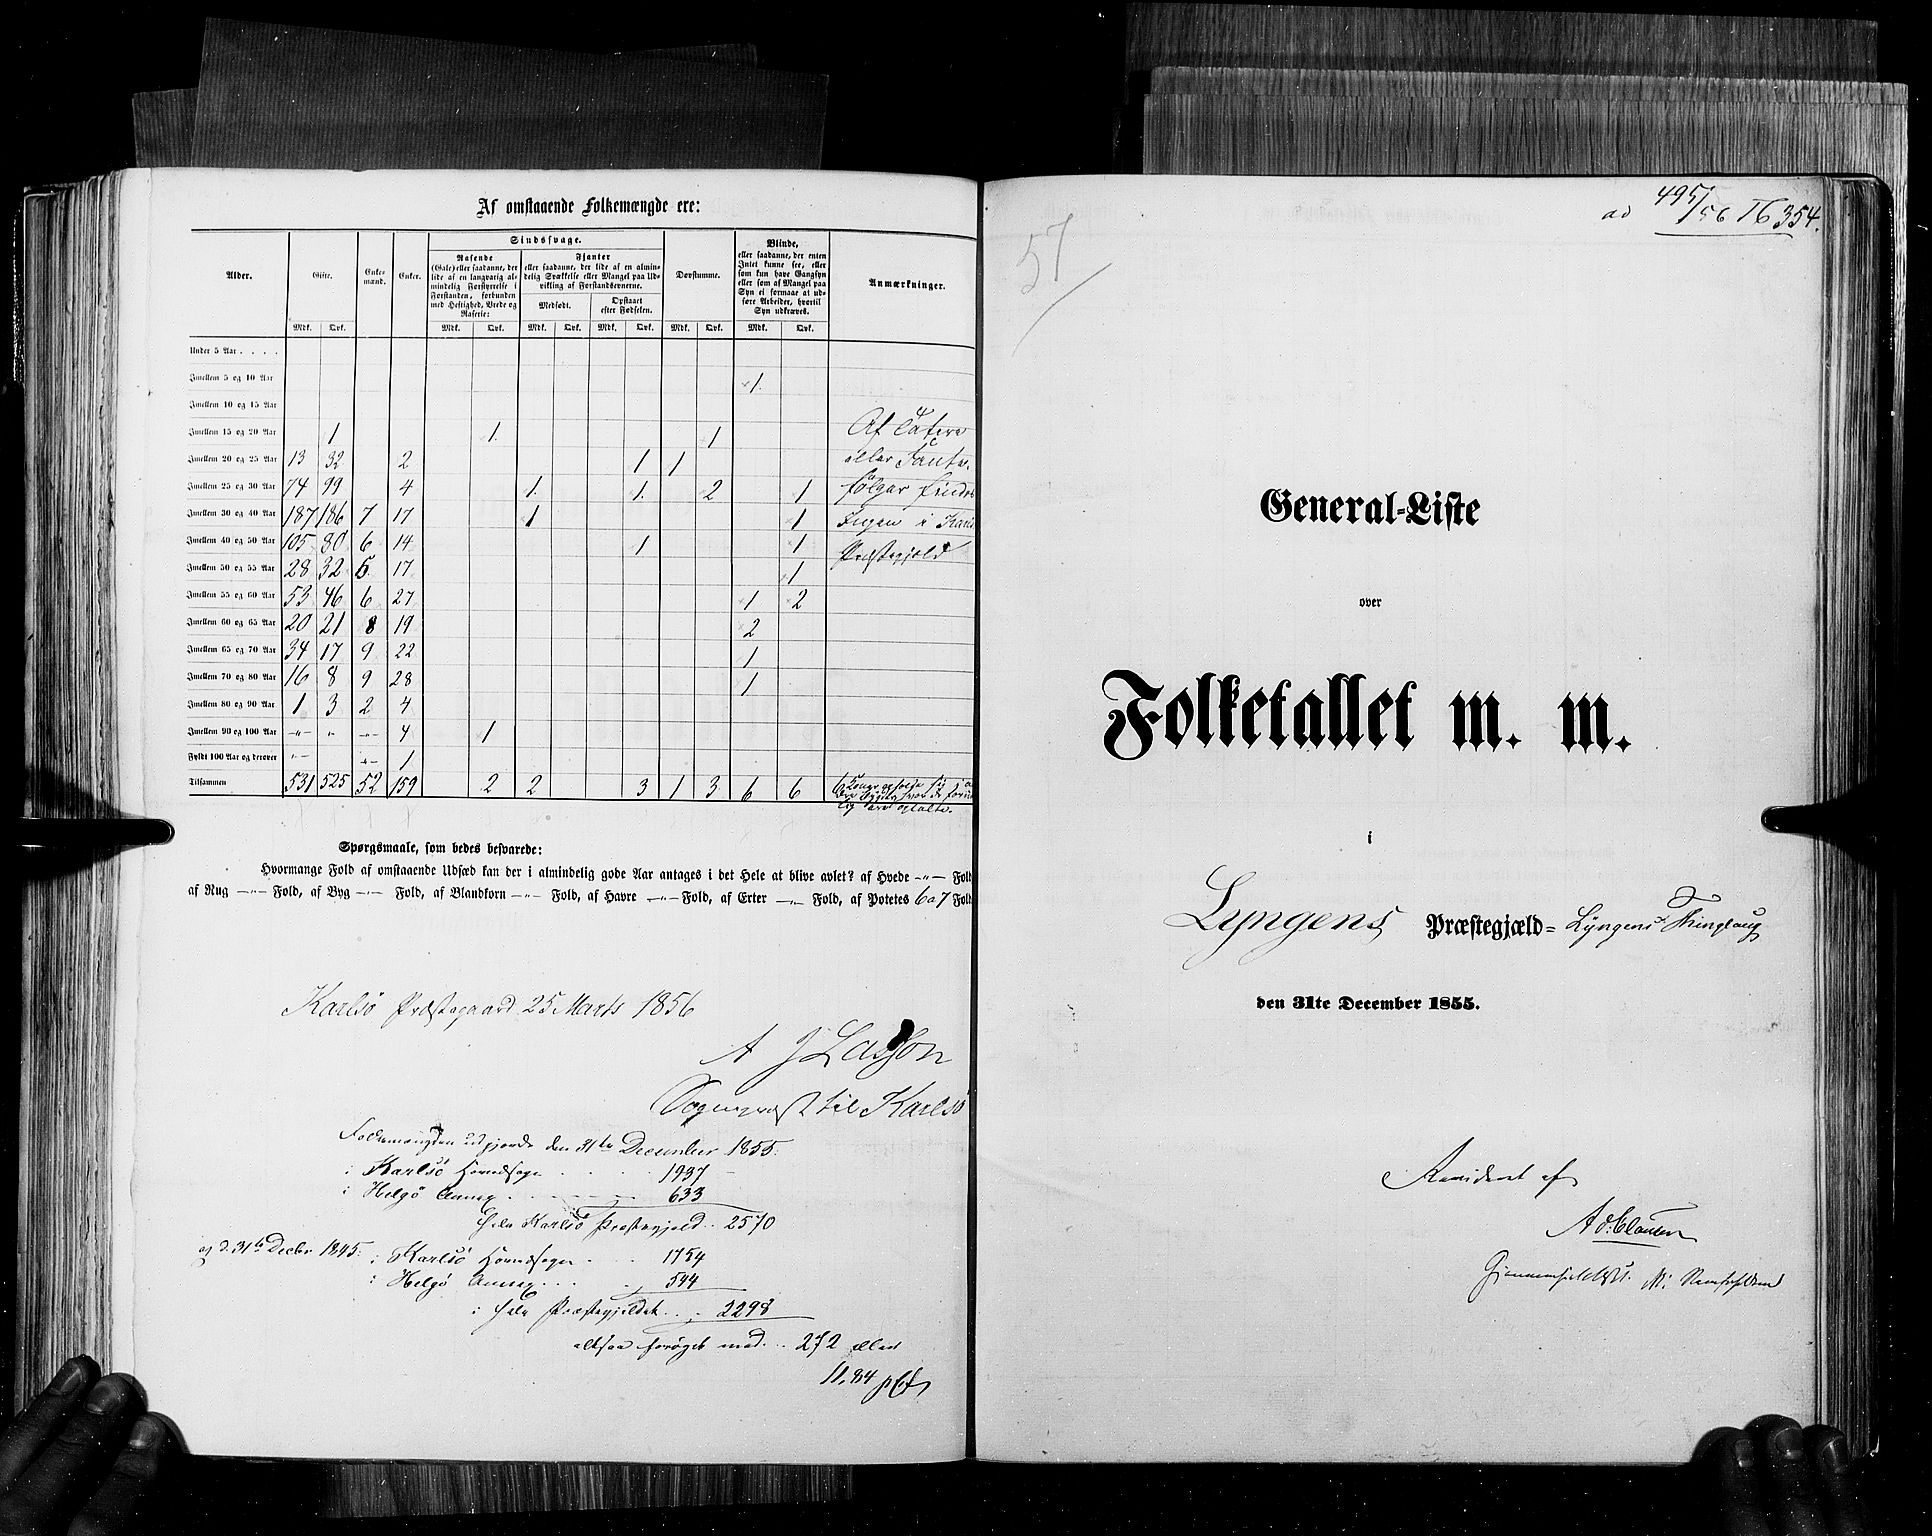 Af omstaaende Folkemængde ere:
Alder. Gifte. Enke-mænd. Enker. Sindssvage. Døvstumme. Blinde, Anmærkninger.
Rasende (Gale) eller saadanne, der lide af en langvarig almindelig Forstyrrelse i Forstanden, forbunden med Heftighed, Vrede og Raserie:
Fjanter eller saadanne, der lide af en almindelig Svækkelse eller Mangel paa Udvikling af Forstandsevnerne.
Medfødt. Opstaaet efter Fødselen.
eller saadanne, der enten Intet kunne see, eller som kun have Gangsyn eller som af Mangel paa Syn ei formaae at udføre Arbeider, hvortil Syn udkræves.
Mdk. Qvk. Mdk. Qvk. Mdk. Qvk. Mdk. Qvk. Mdk. Qvk. Mdk. Qvk.
Under 5 Aar . . . .
Imellem 5 og 10 Aar 1.
Imellem 10 og 15 Aar
Imellem 15 og 20 Aar 1 1. 1 Af Tatere
Imellem 20 og 25 Aar 13 32 2 1 1 eller Fante-
Imellem 25 og 30 Aar 74 99 4 1. 1. 2 1 følger findes
Imellem 30 og 40 Aar 187 186 7 17 1 1 Ingen i Karls
Imellem 40 og 50 Aar 105 80 6 14 1 1 Præstegjeld
Imellem 50 og 55 Aar 28 32 5 17 1
Imellem 55 og 60 Aar 53 46 6 27 1 2
Imellem 60 og 65 Aar 20 21 8 19 2
Imellem 65 og 70 Aar 34 17 9 22 1
Imellem 70 og 80 Aar 16 8 9 28 1
Imellem 80 og 90 Aar 1 3 2 4
Imellem 90 og 100 Aar -"- " -"- 4 1
Fyldt 100 Aar og derover "- -"- 1
Tilsammen 531 525 52 159 2 2 3 1 3 6 6
Spørgsmaale, som bedes besvarede:
Hvormange Fold af omstaaende Udsæd kan der i almindelig gode Aar antages i det Hele at blive avlet? af Hvede -"- Fold
af Rug -"- Fold, af Byg -"- Fold, af Blandkorn -"- Fold, af Havre -"- Fold, af Erter -"- Fold, af Potetes 6 a 7 Fold
Karlsö Præstegaard 25 Marts 1856
A J Lasson
Sognepræst til Karlsö
Folkemængden udgjorde den 31te December 1855:
i Karlsö Hovedsogn . . . 1937
i Helgö Annex . . . 633
hele Karlsö Præstegjeld . . 2570
og d. 31te Decbr 1845: i Karlsö Hovedsogn . . . 1754
i Helgö Annex . . . 544
i hele Præstegjeldet . . . 2298
altsaa forøget med . . 272 eller
11,84 pCt
57
ad 495/56 T6 354.
General-Liste
over
Folketallet m. m.
i
Lyngens Præstegjæld = Lyngens Thinglaug
den 31te December 1855.
Revideret af
Ad. Clausen